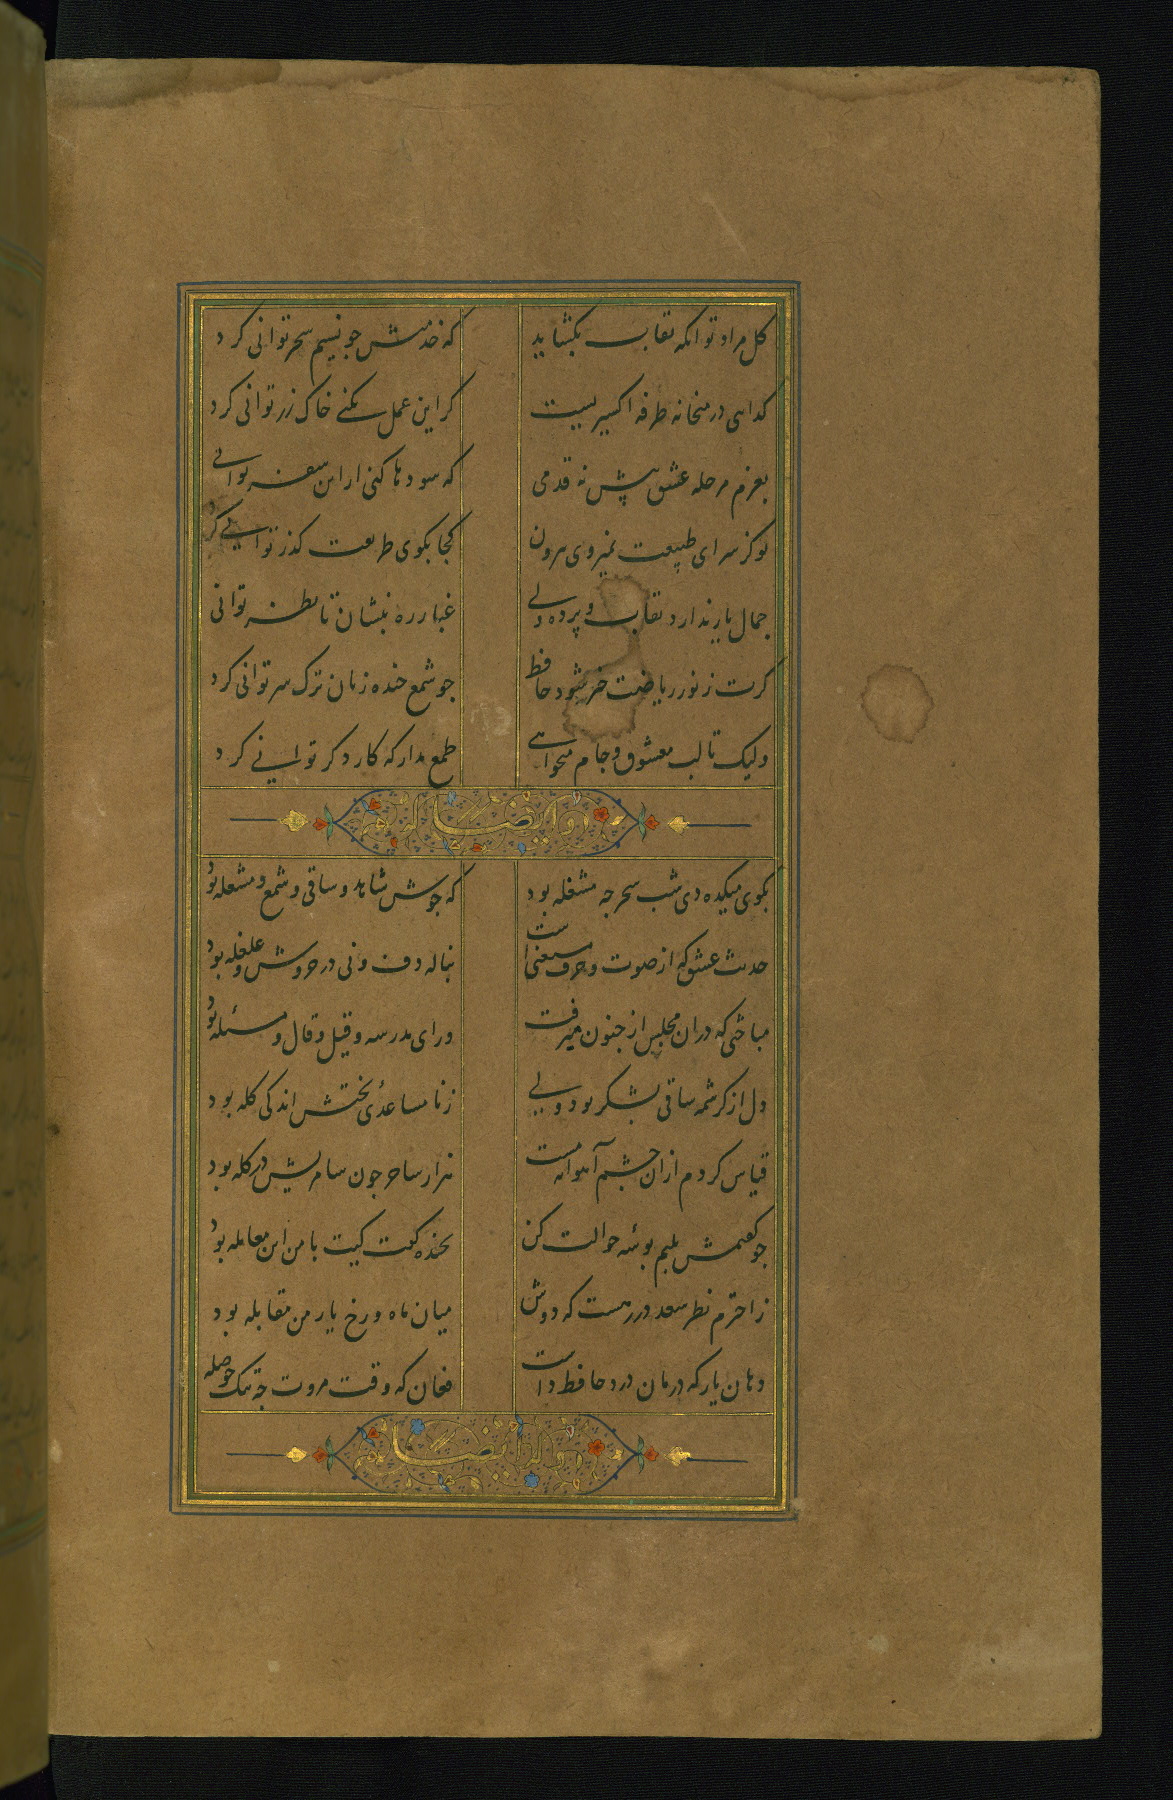 کل مراد تو انکه نقاب بکشاید که خدمتش جو نسیم سحر توانی کرد
کدایی در میخانه طرفه اکسیریست کر این عمل بکنی خاک زر توانی کرد
بعزم مرحله عشق پیش نه قدمی که سودها کنی ار این سفر توانی
تو کز سرای طبیعت نمیروی برون کجا بکوی طریقت کذر توانی کر
جمال یار ندارد نقاب و پرده ولی غبار ره بنشان تا نظر توانی
کرت ز نور ریاضت خبر شود حافظ جو شمع خنده زنان ترک سر توانی کرد
ولیک تا لب معشوق و جام میخواهی طمع مدار که کار دکر توانی کرد
وله ایضا
بکوی میکده دی شب سحر جه مشغله بود که جوش شاهد و ساقی و شمع و مشعله بود
حدیث عشق که از صوت و حرف مستغنی است بناله دف و نی در خروش و غلغله بود
مباحثی که در ان مجلس از جنون میرفت ورای مدرسه و قیل و قال و مسئله بود
دل از کرشمه ساقی بشکر بود ولی ز نا مساعدی بختش اندکی کله بود
قیاس کردم از ان جشم آهوانه مست هزار ساحر جون سامریش در کله بود
جو کفتمش بلبم بوسه حوالت کن بخنده کفت کیت با من این معامله بود
ز اخترم نظر سعد در رهست که دوش میان ماه و رخ یار من مقابله بود
دهان یار که درمان درد حافظ داشت فغان که وقت مروت جه تنک حوصله
وله ایضا